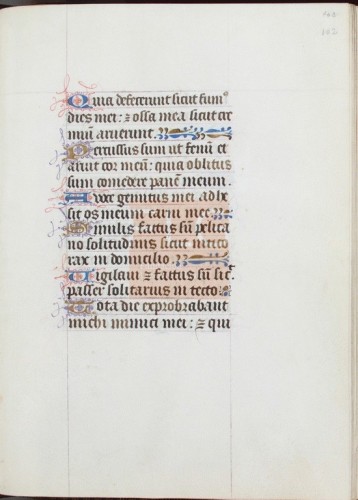 Quia defecerunt sicut fumꝰ
dies mei: ⁊ ossa mea sicut cre
miū aruerunt.
Percussus sum ut fenū et
aruit cor meū: quia oblitus
sum comedere panē meum.
A voce gemitus mei adhe
sit os meum carni mee.
Similis factus sū pelica
no solitudinis sicut nicti
rax in domicilio.
Vigilavi ⁊ factus sū sic
passer solitarius in tecto.
Tota die exprobrabant
michi inimici mei: ⁊ qui